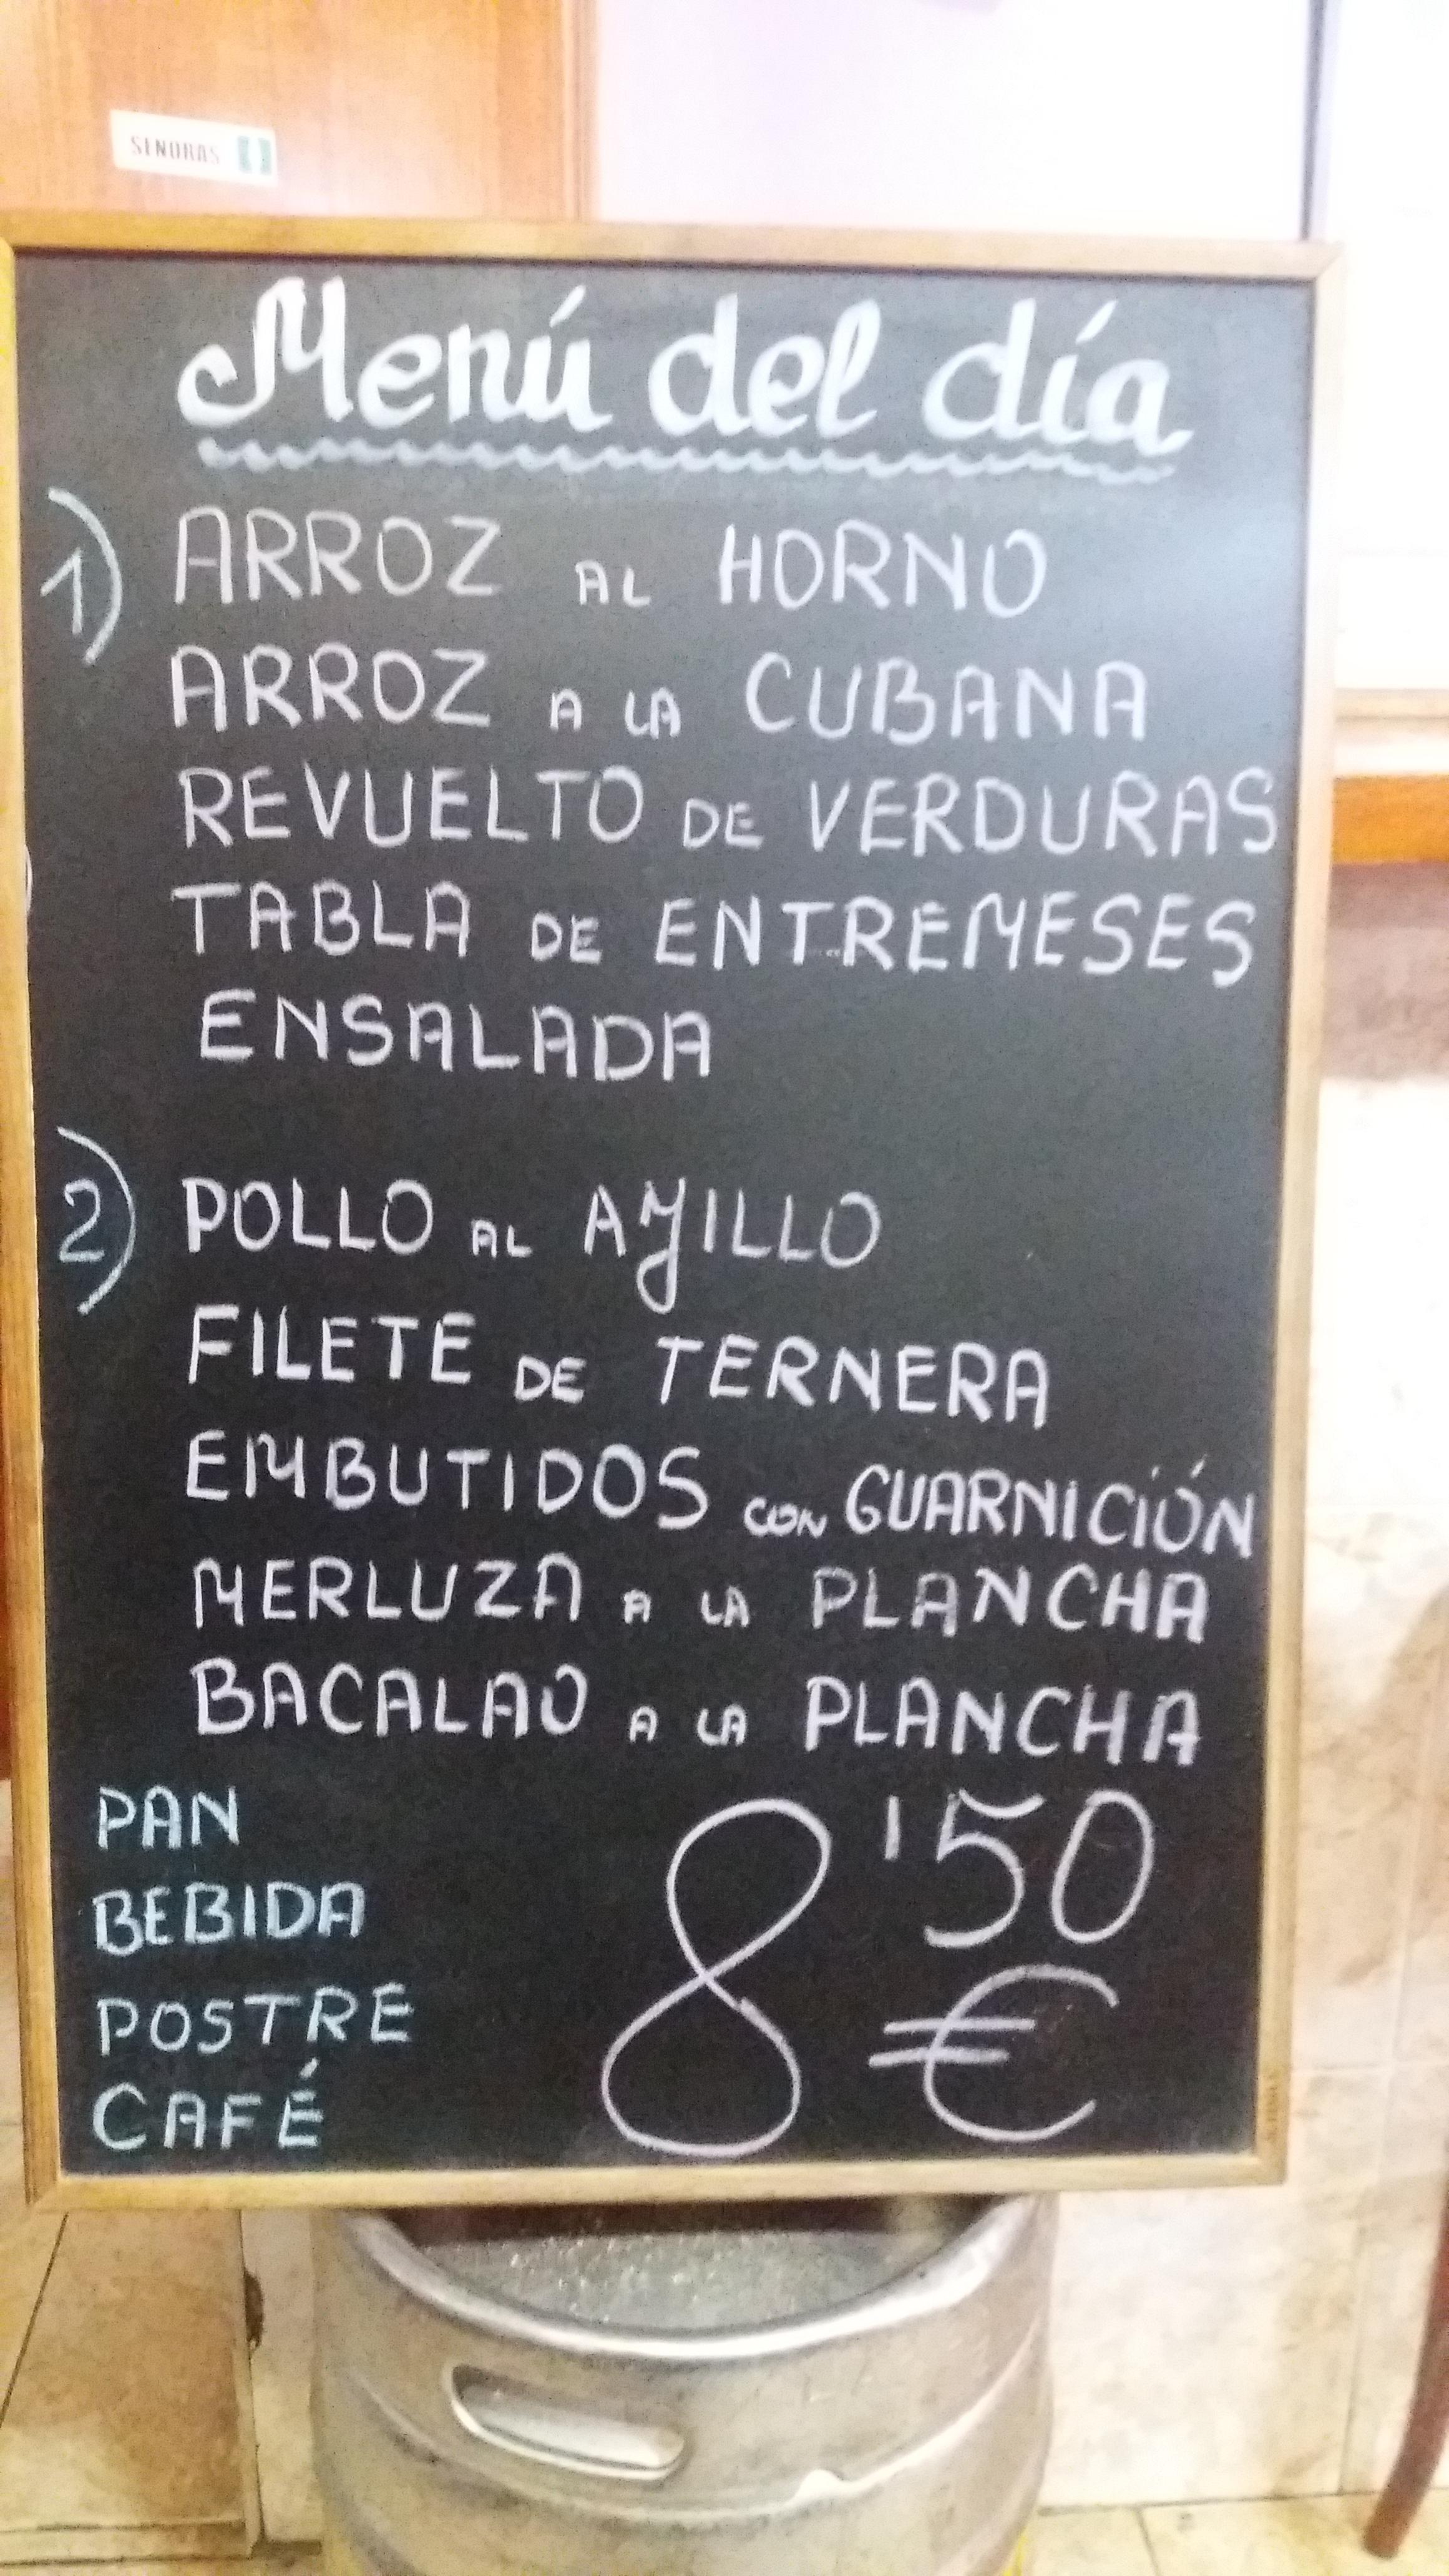 SEÑORAS
Menú del día
1) ARROZ AL HORNO
ARROZ A LA CUBANA
REVUELTO DE VERDURAS
TABLA DE ENTREMESES
ENSALADA
2) POLLO AL AJILLO
FILETE DE TERNERA
EMBUTIDOS CON GUARNICIÓN
MERLUZA A LA PLANCHA
BACALAO A LA PLANCHA
PAN
BEBIDA
POSTRE
CAFÉ
8'50
€